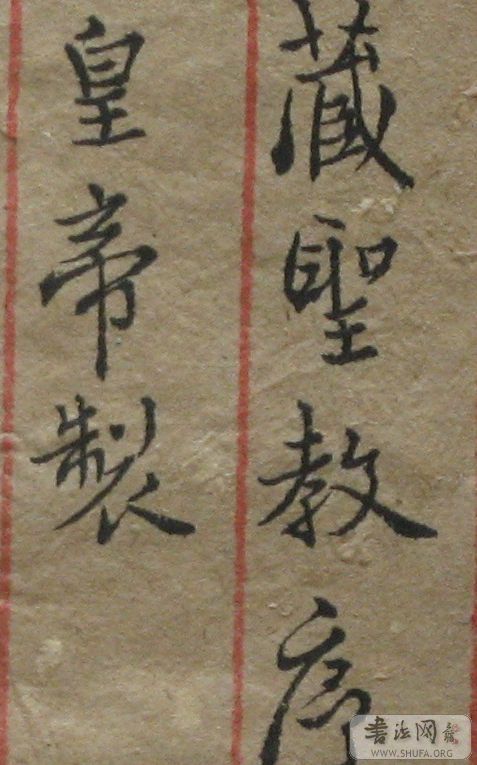 藏聖教序
皇帝製
書法网
WWW.SHUFA.ORG